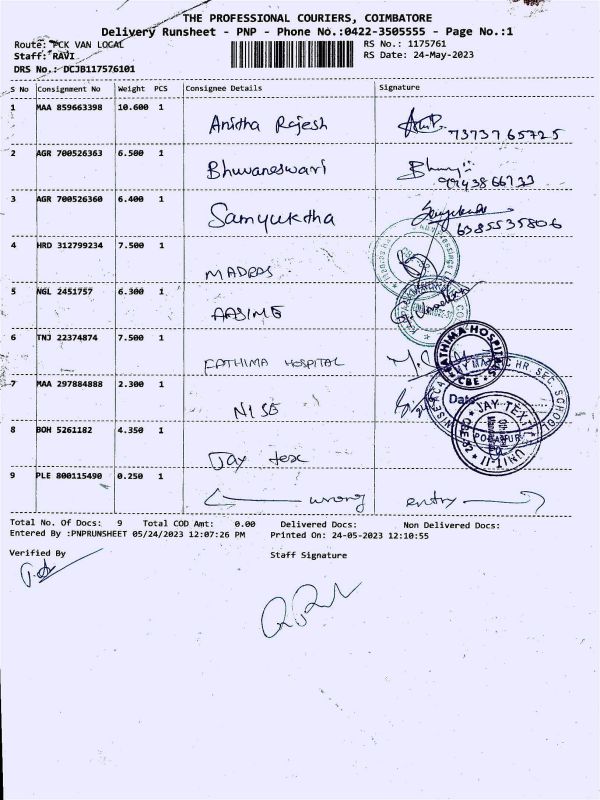 THE PROFESSIONAL COURIERS, COIMBATORE
Delivery Runsheet - PNP - Phone No.:0422-3505555 - Page No.:1
Route: PCK VAN LOCAL
Staff: RAVI
DRS No.: DCJB117576101
RS No.: 1175761
RS Date: 24-May-2023
S No Consignment No Weight PCS Consignee Details Signature
1 MAA 859663398 10.600 1 Anitha Rajesh 7373765725
2 AGR 700526363 6.500 1 Bhuvaneswari
3 AGR 700526360 6.400 1 Samyuktha 6385535806
4 HRD 312799234 7.500 1 MADRAS
5 NGL 2451757 6.300 1
6 TNJ 22374874 7.500 1 FATHIMA HOSPITAL
FATHIMA HOSPITAL
CBE
7 MAA 297884888 2.300 1 NISE
HR SEC. SCHOOL
Date
8 BOH 5261182 4.350 1 Jay tex
JAY TEX
UNIT-II
9 PLE 800115490 0.250 1 wrong entry
Total No. Of Docs: 9 Total COD Amt: 0.00 Delivered Docs: Non Delivered Docs:
Entered By :PNPRUNSHEET 05/24/2023 12:07:26 PM Printed On: 24-05-2023 12:10:55
Verified By Staff Signature